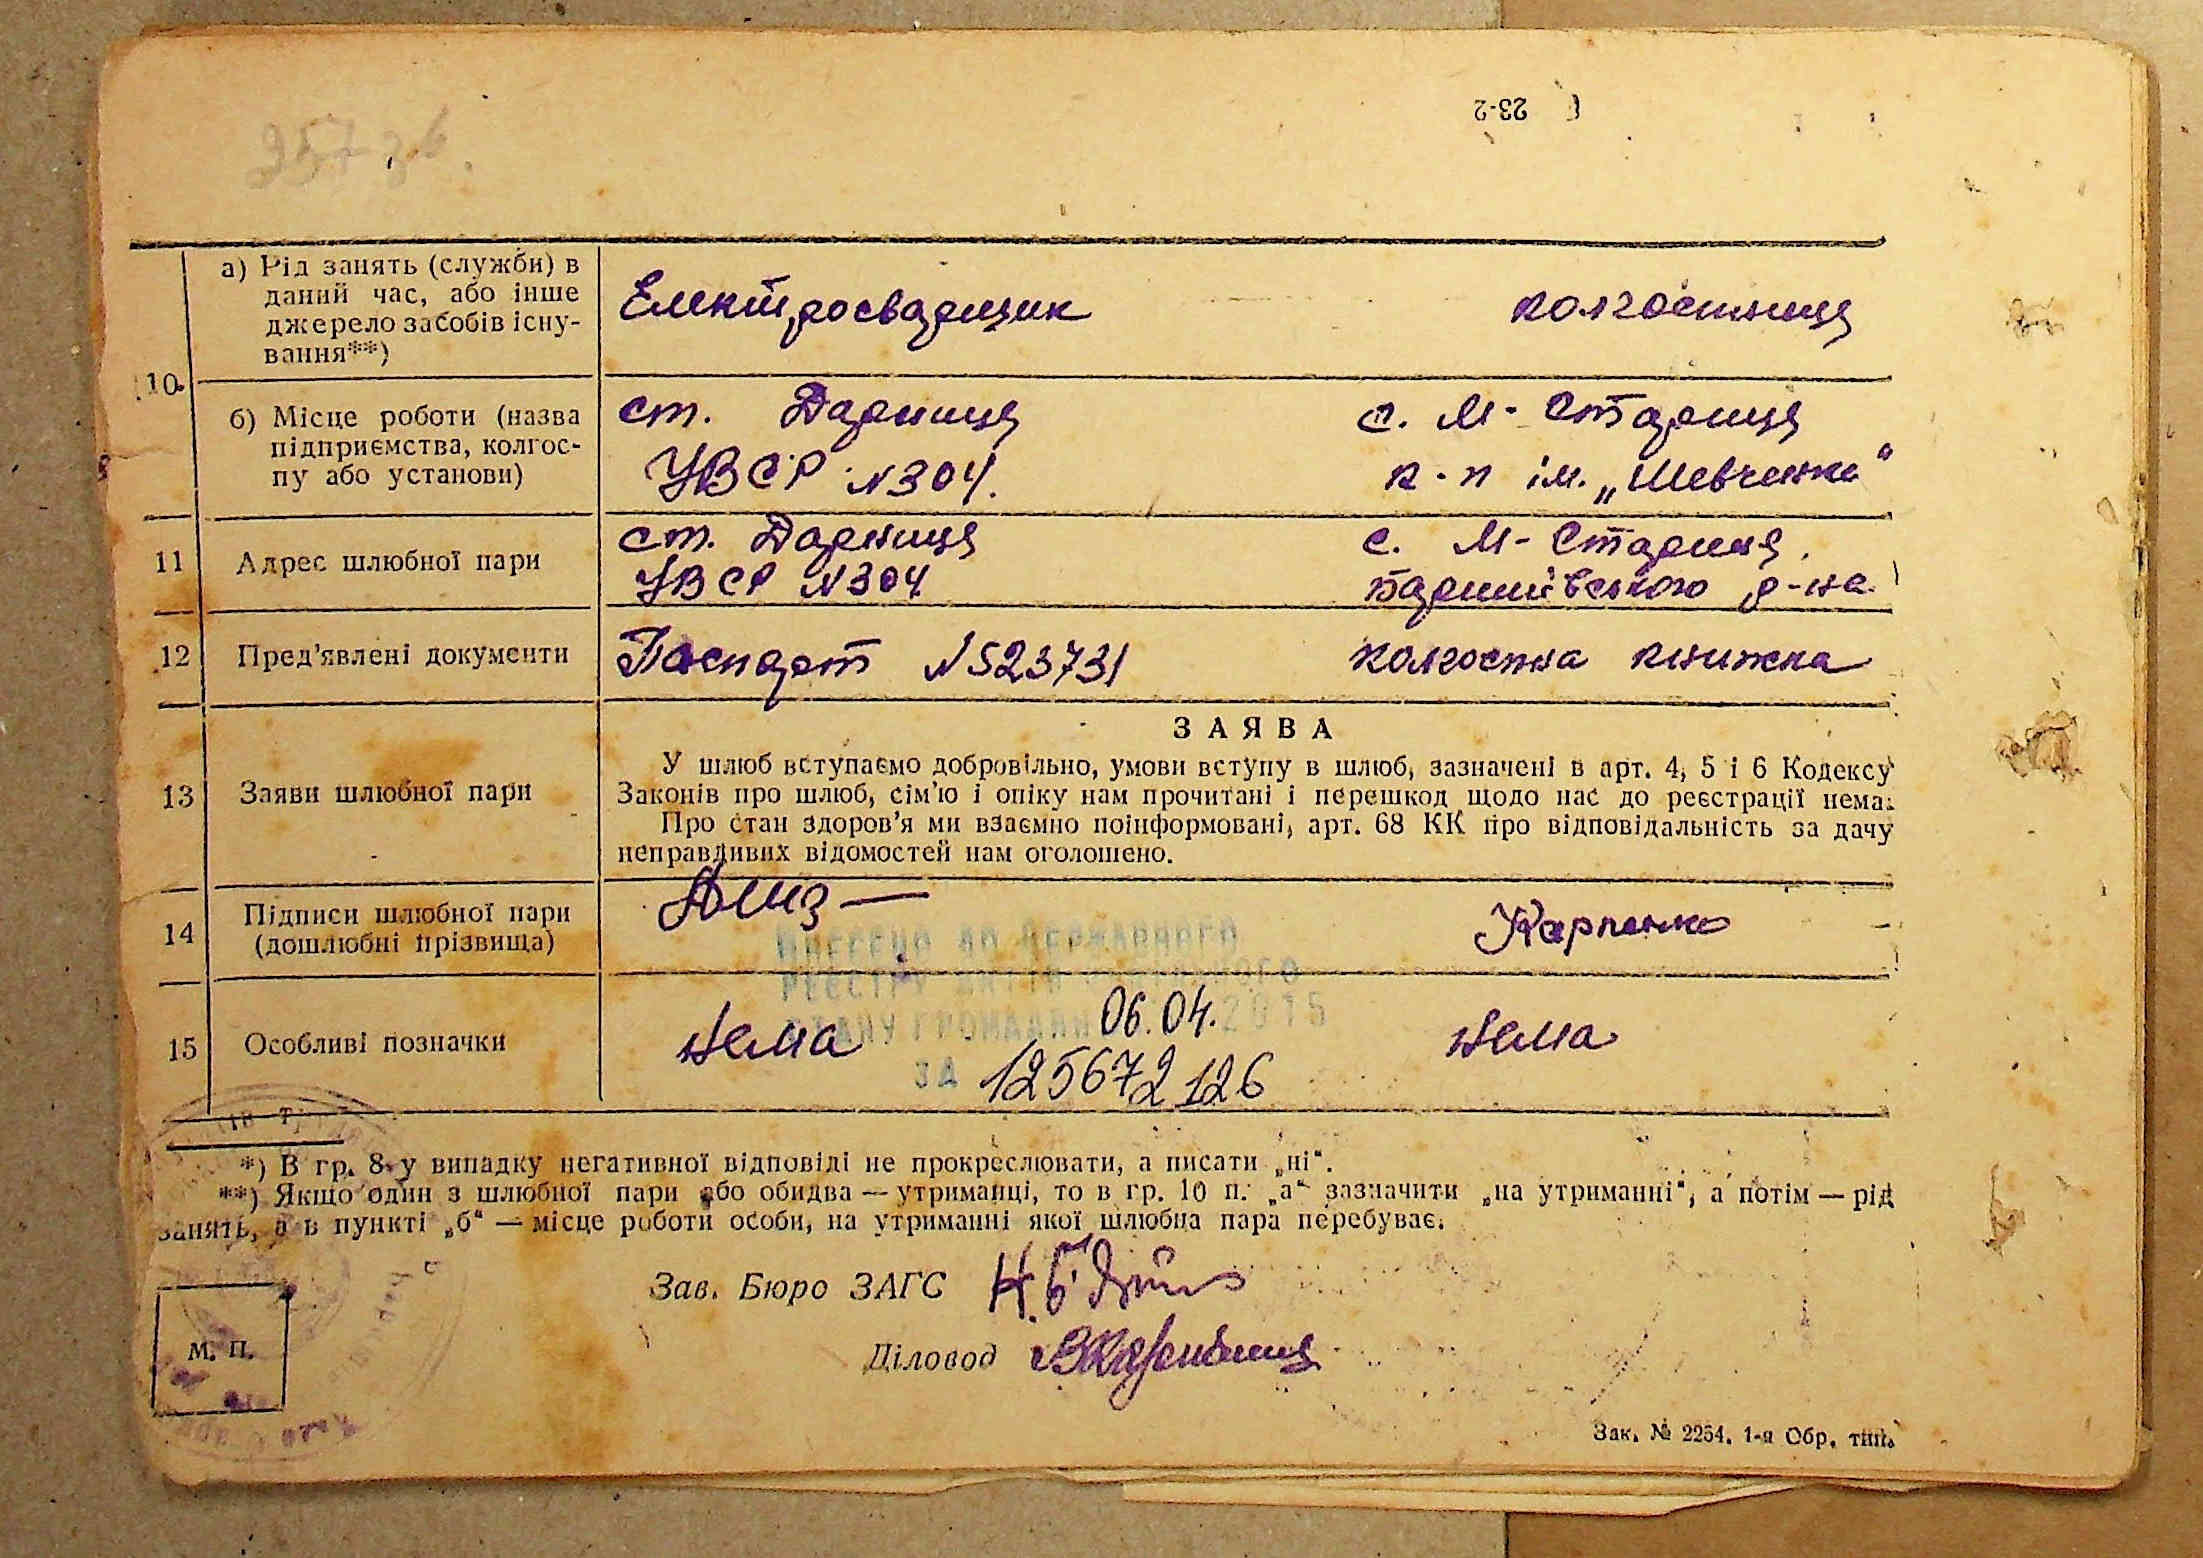 23-2
10.
а) Рід занять (служби) в
даний час, або інше
джерело засобів існу-
вання**)
Електросварщик
колгостниця
б) Місце роботи (назва
підприємства, колгос-
пу або установи)
ст. Дарниця
УВСР №304.
с. М-Стариця
к-п ім. „Шевченка“
11
Адрес шлюбної пари
ст. Дарниця
УВСР №304
с. М-Стариця
р-на
12
Пред’явлені документи
Паспорт №523731
колгоспна книжка
13
Заяви шлюбної пари
ЗАЯВА
У шлюб вступаємо добровільно, умови вступу в шлюб, зазначені в арт. 4, 5 і 6 Кодексу
Законів про шлюб, сім’ю і опіку нам прочитані і перешкод щодо нас до реєстрації нема.
Про стан здоров’я ми взаємно поінформовані, арт. 68 КК про відповідальність за дачу
неправдивих відомостей нам оголошено.
14
Підписи шлюбної пари
(дошлюбні прізвища)
Карпенко
ВНЕСЕНО ДО ДЕРЖАВНОГО
РЕЄСТРУ АКТІВ ЦИВІЛЬНОГО
СТАНУ ГРОМАДЯН 06.04. 2015
ЗА 125672126
15
Особливі позначки
Нема
Нема
*) В гр. 8 у випадку негативної відповіді не прокреслювати, а писати „ні“.
**) Якщо один з шлюбної пари або обидва — утриманці, то в гр. 10 п. „а“ зазначити „на утриманні“, а потім — рід
занять, а в пункті „б“ — місце роботи особи, на утриманні якої шлюбна пара перебуває.
Зав. Бюро ЗАГС
Діловод
М. П.
Зак. № 2264. 1-я Обр. тип.